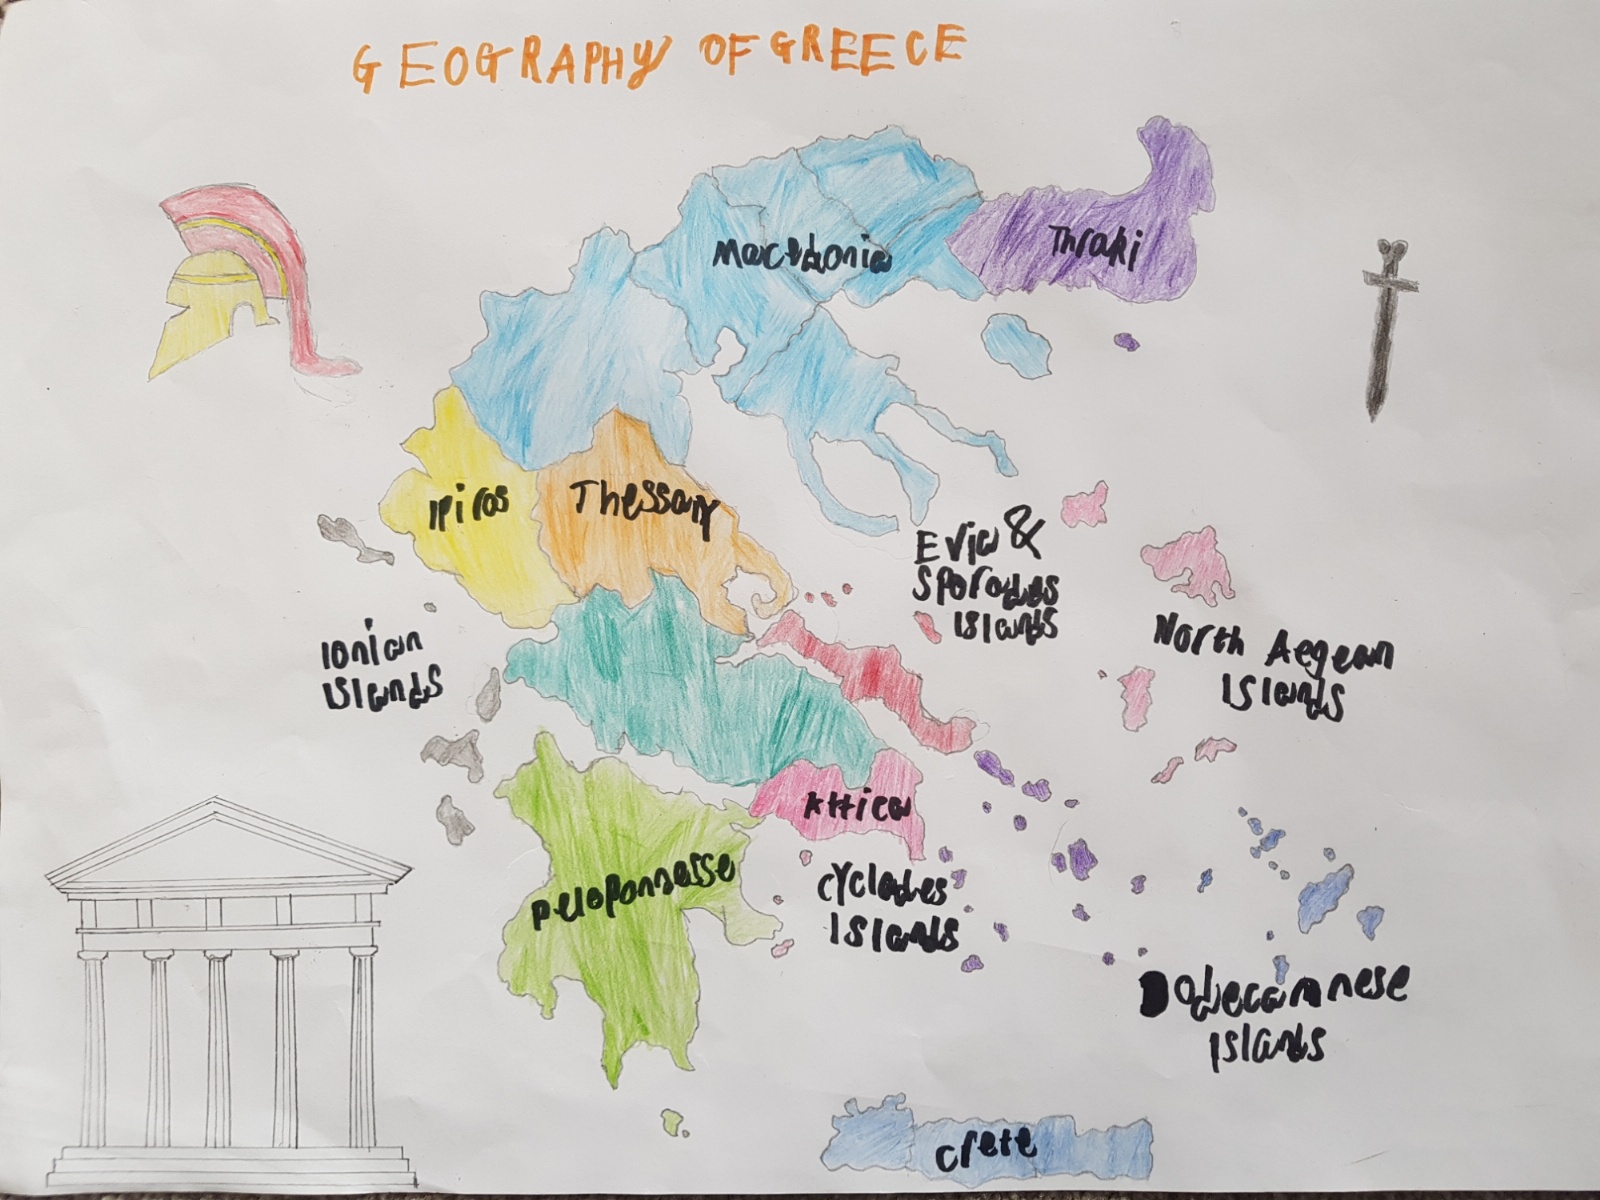 GEOGRAPHY OF GREECE
Macedonia
Thraki
Ipiros
Thessaly
Evia &
Sporades
Islands
North Aegean
Islands
Ionian
Islands
Attica
Peloponnesse
Cyclades
Islands
Dodecannese
Islands
Crete